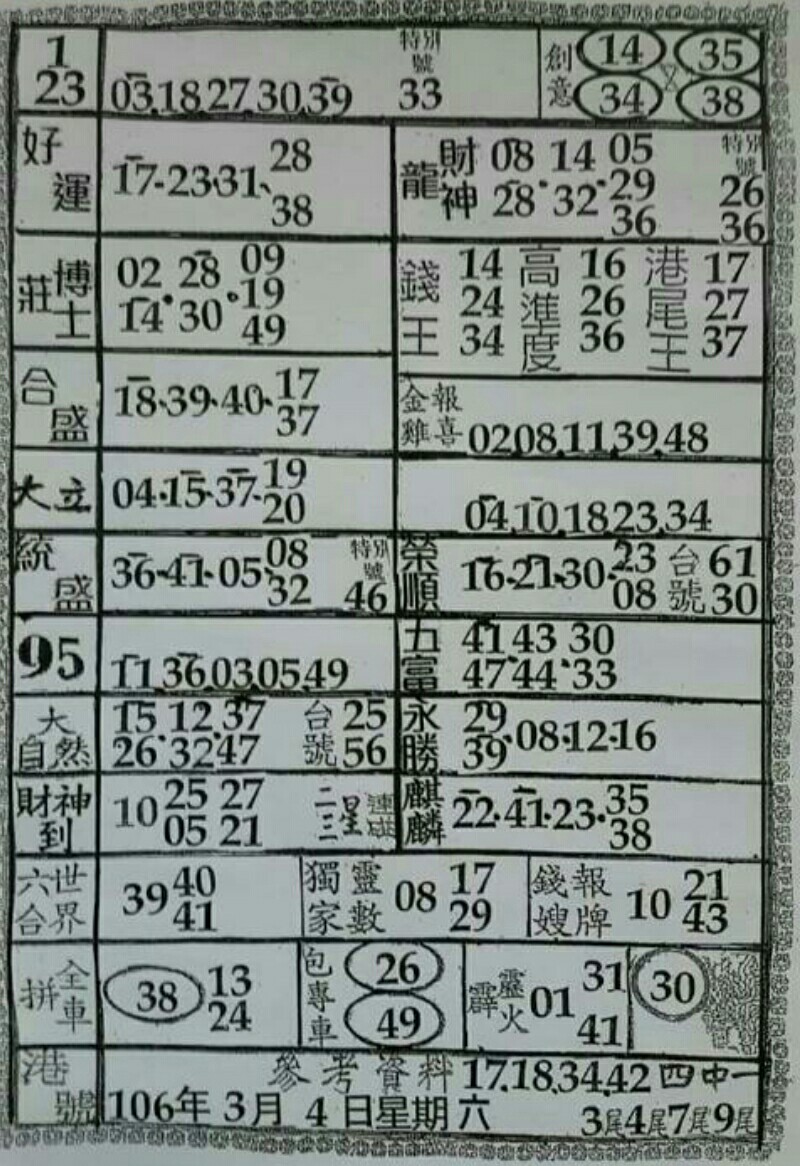 1
23
03.18.27.30.39
特別號
33
創意
14 35
34 38
好運
17·23·31·
28
38
龍
財神
08 14 05
28·32·29
36
特別號
26
36
莊
博士
02 28 09
14·30·19
49
錢王
14
24
34
高準度
16
26
36
港尾王
17
27
37
合盛
18·39·40·
17
37
金雞
報喜
02.08.11.39.48
大立
04·15·37·
19
20
04.10.18.23.34
統盛
36·41·05·
08
32
特別號
46
榮順
16·21·30·
23
08
台號
61
30
95
11.36.03.05.49
五富
41 43 30
47·44·33
大自然
15 12 37
26·32·47
台號
25
56
永勝
29
39
·08·12·16
財神到
10
25 27
05 21
二三星
麒麟
22·41·23·
35
38
六合
世界
39
40
41
獨家
靈數
08
17
29
錢嫂
報牌
10
21
43
拼
全車
38
13
24
包專車
26
49
霹靈火
01
31
41
30
港號
參考資料 17.18.34.42 四中一
106年 3月 4日星期六 3尾4尾7尾9尾